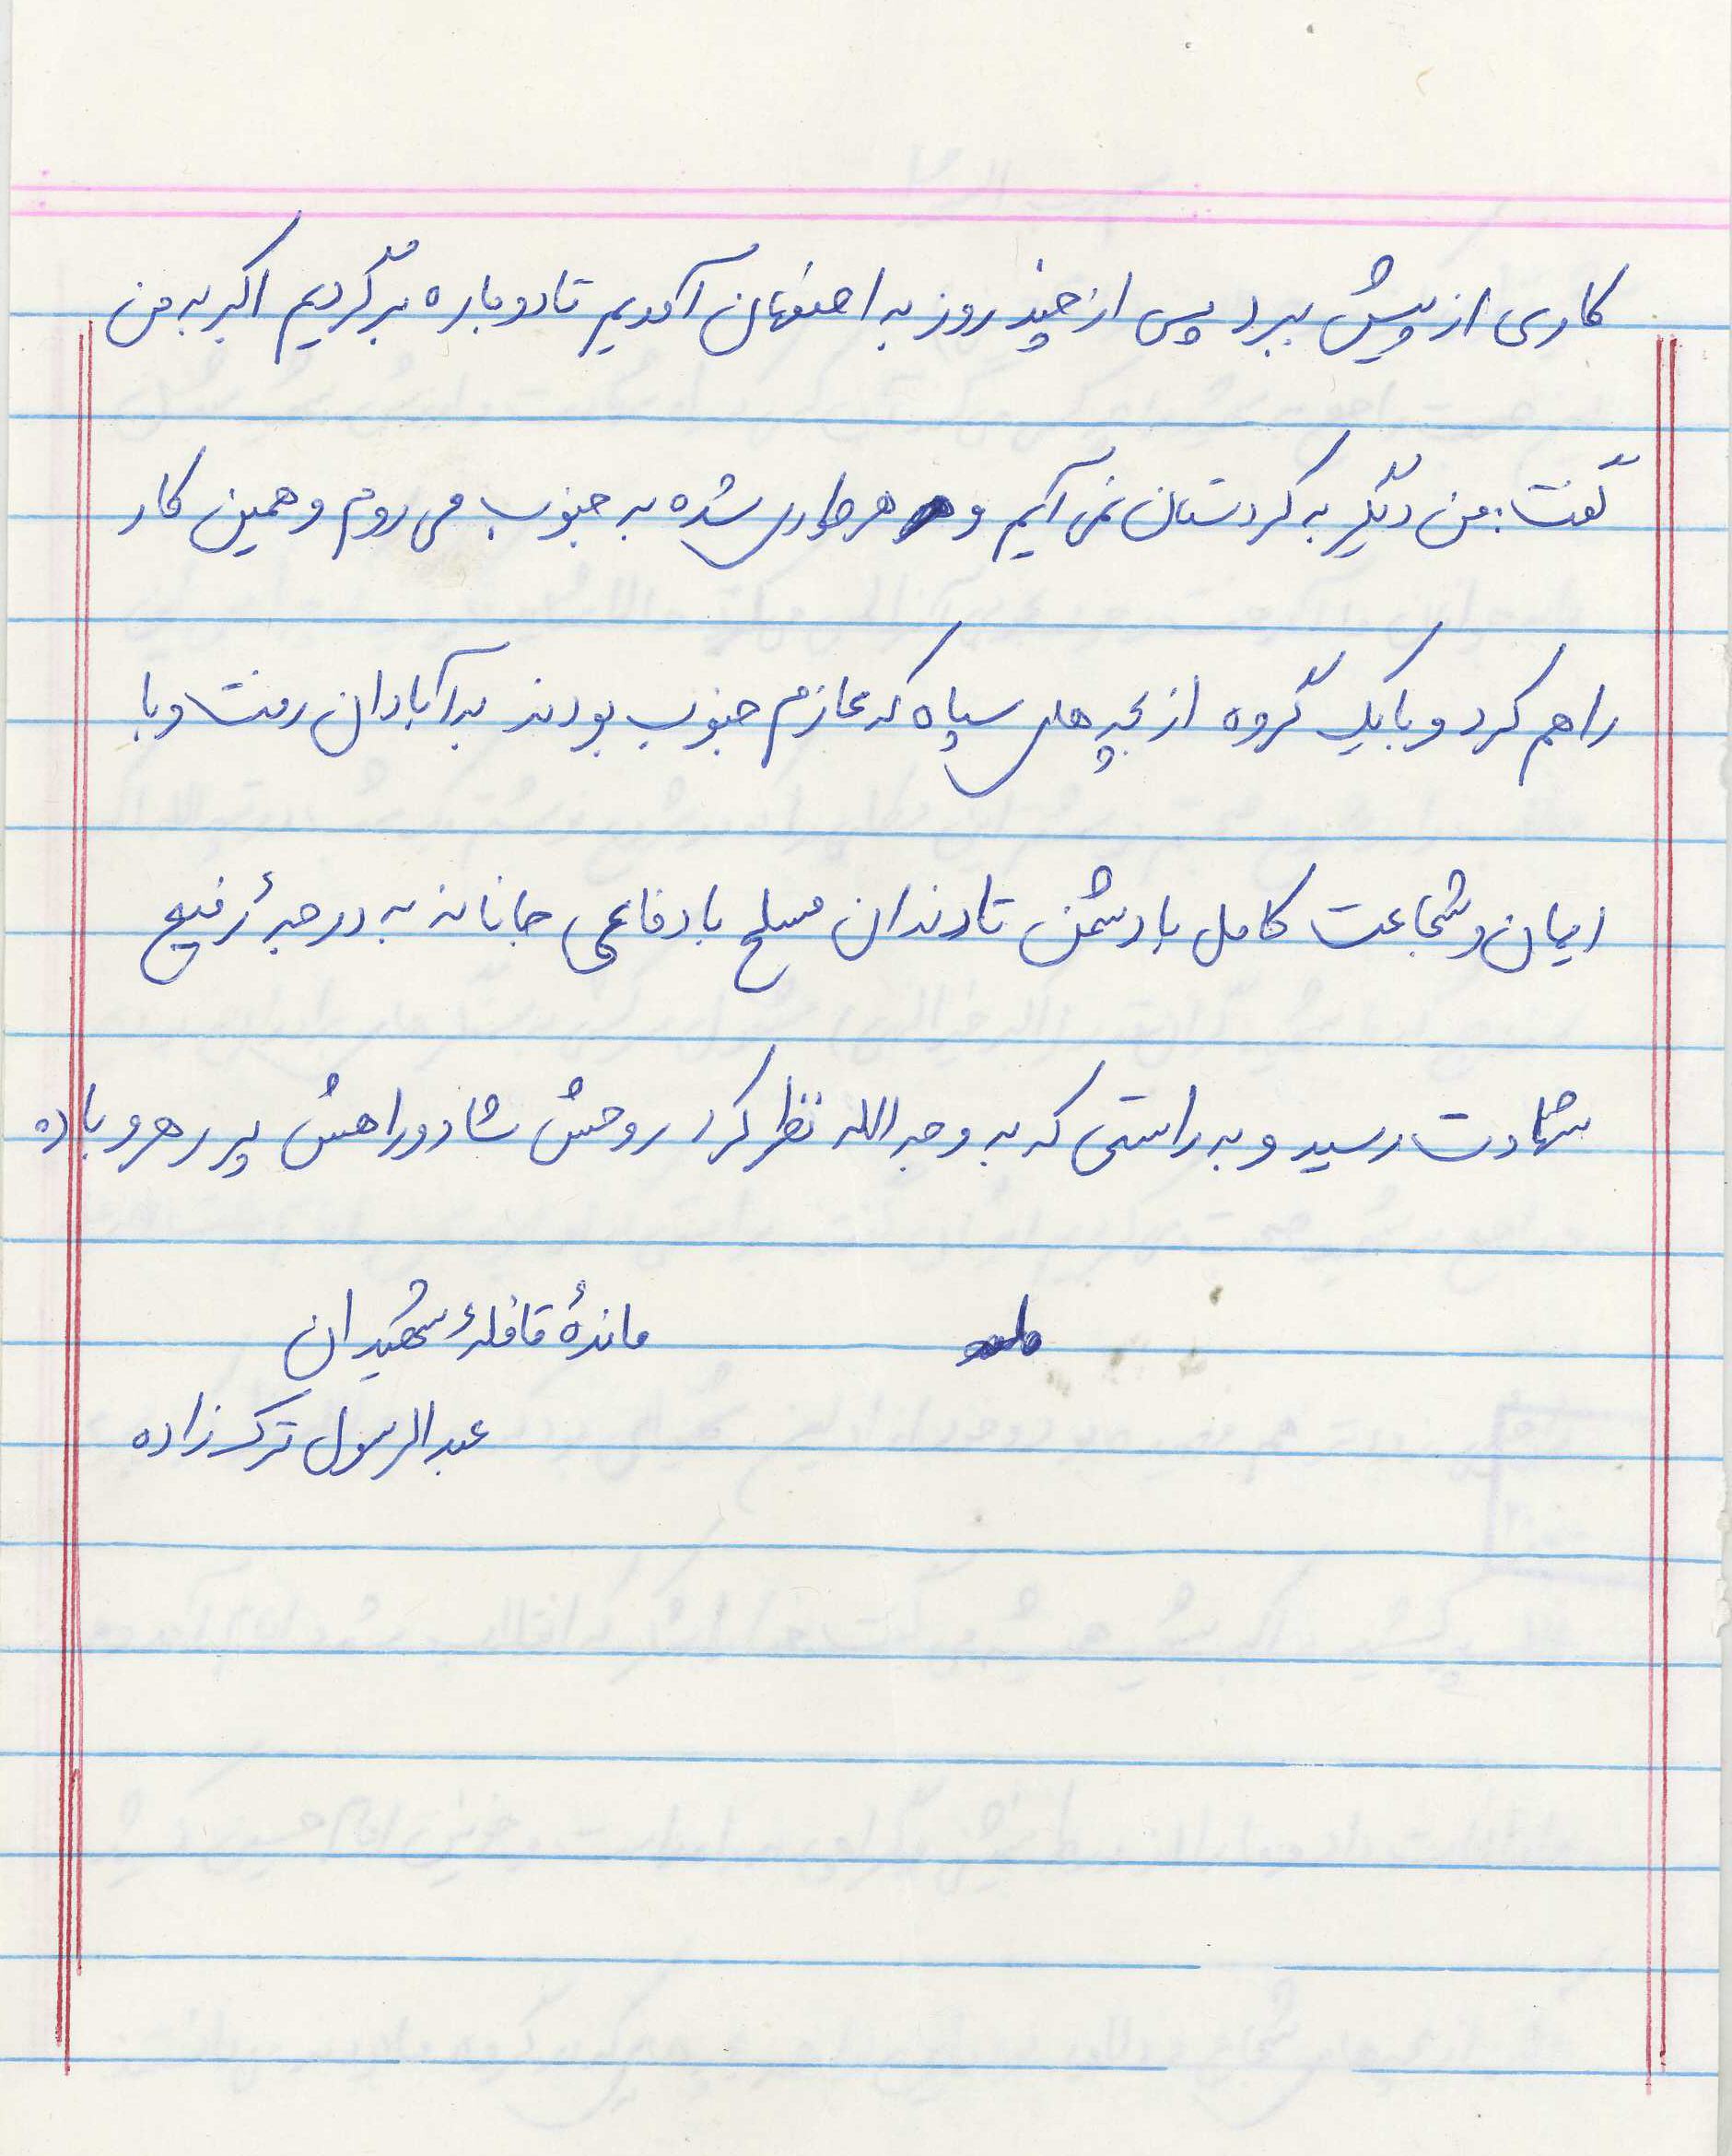 کاری از پیش ببرد پس از چند روز به اصفهان آمدیم تا دوباره برگردیم اکبر به من
گفت: من دیگر به کردستان نمی آیم و هر طوری شده به جنوب می روم و همین کار
را هم کرد و با یک گروه از بچه های سپاه که عازم جنوب بودند به آبادان رفت و با
ایمان و شجاعت کامل با دشمن تا دندان مسلح با دفاعی جانانه به درجهٔ رفیع
شهادت رسید و به راستی که به وجه الله نظر کرد روحش شاد و راهش پر رهرو باده
ماندهٔ قافلهٔ شهیدان
عبدالرسول ترک زاده